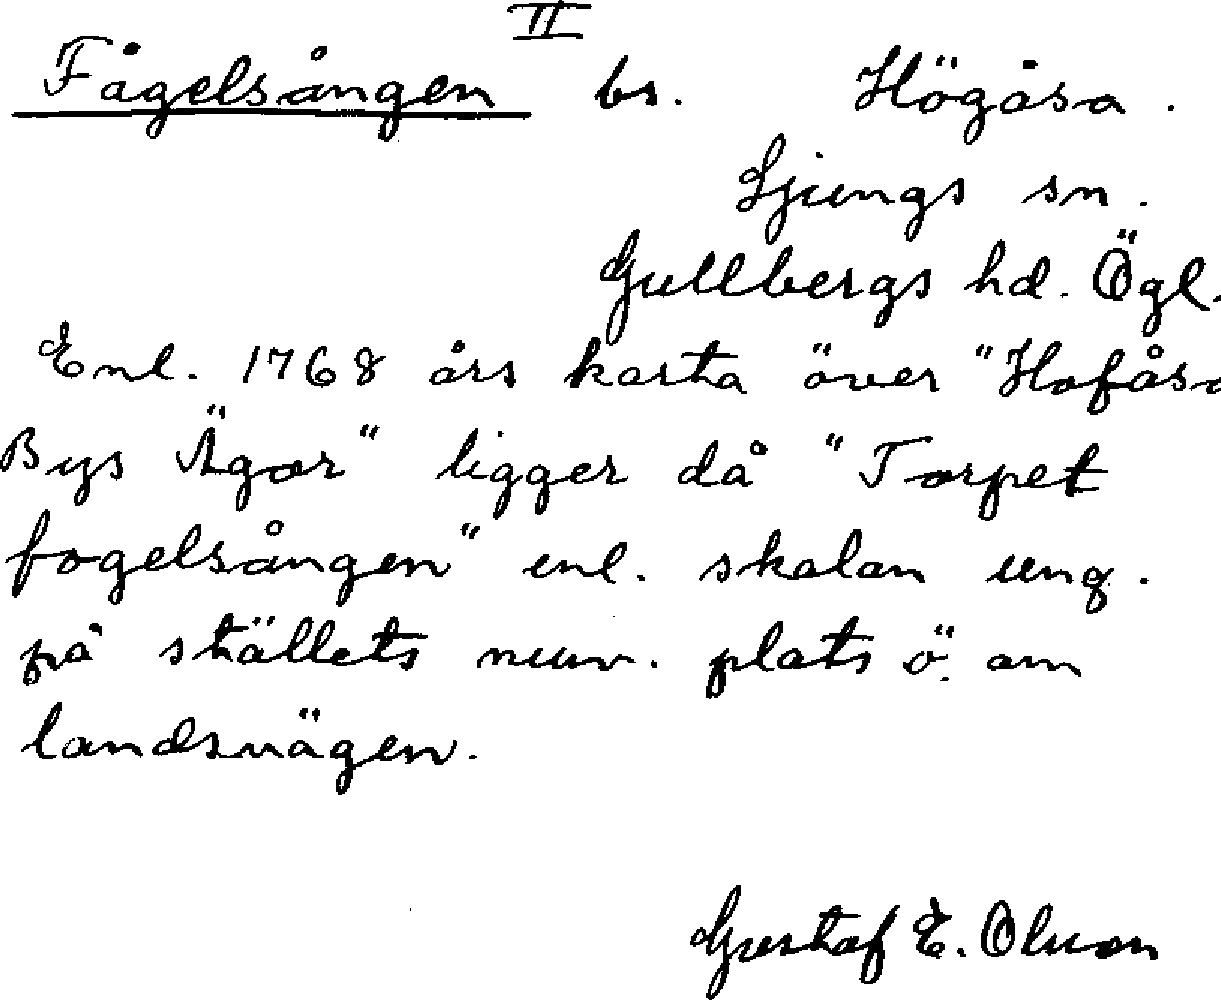 II
Fågelsången bs. Högåsa.
Ljungs sn.
Gullbergs hd. Ögl.
Enl. 1768 års karta över "Hofåsa
Bys Ägor" ligger då "Torpet
fogelsången" enl. skalan ung.
på ställets nuv. plats ö. om
landsvägen.
Gustaf E. Olson